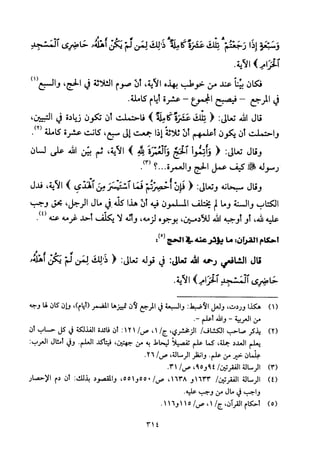 وَسَبْعَةٍ إِذَا رَجَعْتُمْ تِلْكَ عَشَرَةٌ كَامِلَةٌ ذَلِكَ لِمَن لَّمْ يَكُنْ أَهْلُهُ حَاضِرِى ٱلْمَسْجِدِ
ٱلْحَرَامِ ﴾ الآية.
فكان بيّناً عند من خوطب بهذه الآية، أنَّ صوم الثلاثة في الحج، والسبع (١)
في المرجع – فيصبح المجموع – عشرة أيام كاملة.
قال الله تعالى: ﴿ تِلْكَ عَشَرَةٌ كَامِلَةٌ ﴾ فاحتملت أن تكون زيادة في التبيين،
واحتملت أن يكون أعلمهم أنَّ ثلاثةً إذا جمعت إلى سبع، كانت عشرة كاملة (٢).
وقال تعالى: ﴿ وَأَتِمُّواْ ٱلْحَجَّ وَٱلْعُمْرَةَ لِلَّهِ ﴾ الآية، ثم بيّن الله على لسان
رسوله ﷺ كيف عمل الحج والعمرة...؟ (٣).
وقال سبحانه وتعالى: ﴿ فَإِنْ أُحْصِرْتُمْ فَمَا ٱسْتَيْسَرَ مِنَ ٱلْهَدْىِ ﴾ الآية، فدل
الكتاب والسنة وما لم يختلف المسلمون فيه أنَّ هذا كلَّه في مال الرجل، بحق وجب
عليه لله، أو أوجبه الله للآدميين، بوجوه لزمه، وأنَّه لا يكلَّف أحد غرمه عنه (٤).
أحكام القرآن: ما يؤثر عنه في الحج (٥):
قال الشافعي رحمه الله تعالى: في قوله تعالى: ﴿ ذَلِكَ لِمَن لَّمْ يَكُنْ أَهْلُهُ
حَاضِرِى ٱلْمَسْجِدِ ٱلْحَرَامِ ﴾ الآية.
(١) هكذا وردت، ولعل الأضبط: والسبعة في المرجع لأن تمييزها المضمر (أيام)، وإن كان لها وجه
من العربية – والله أعلم –.
(٢) يذكر صاحب الكشاف/ الزمخشري، ج/ ١، ص/ ١٢١: أن فائدة الفذلكة في كل حساب أن
يعلم العدد جملة، كما علم تفصيلاً ليحاط به من جهتين، فيتأكد العلم. وفي أمثال العرب:
علمان خير من علم. وانظر الرسالة، ص/ ٢٦.
(٣) الرسالة الفقرتين/ ٩٤ و٩٥، ص/ ٣١.
(٤) الرسالة الفقرتين/ ١٦٣٣ و ١٦٣٨، ص/ ٥٥٠ و٥٥١، والمقصود بذلك: أن دم الإحصار
واجب في مال من وجب عليه.
(٥) أحكام القرآن، ج/ ١، ص/ ١١٥ و١١٦.
٣١٤